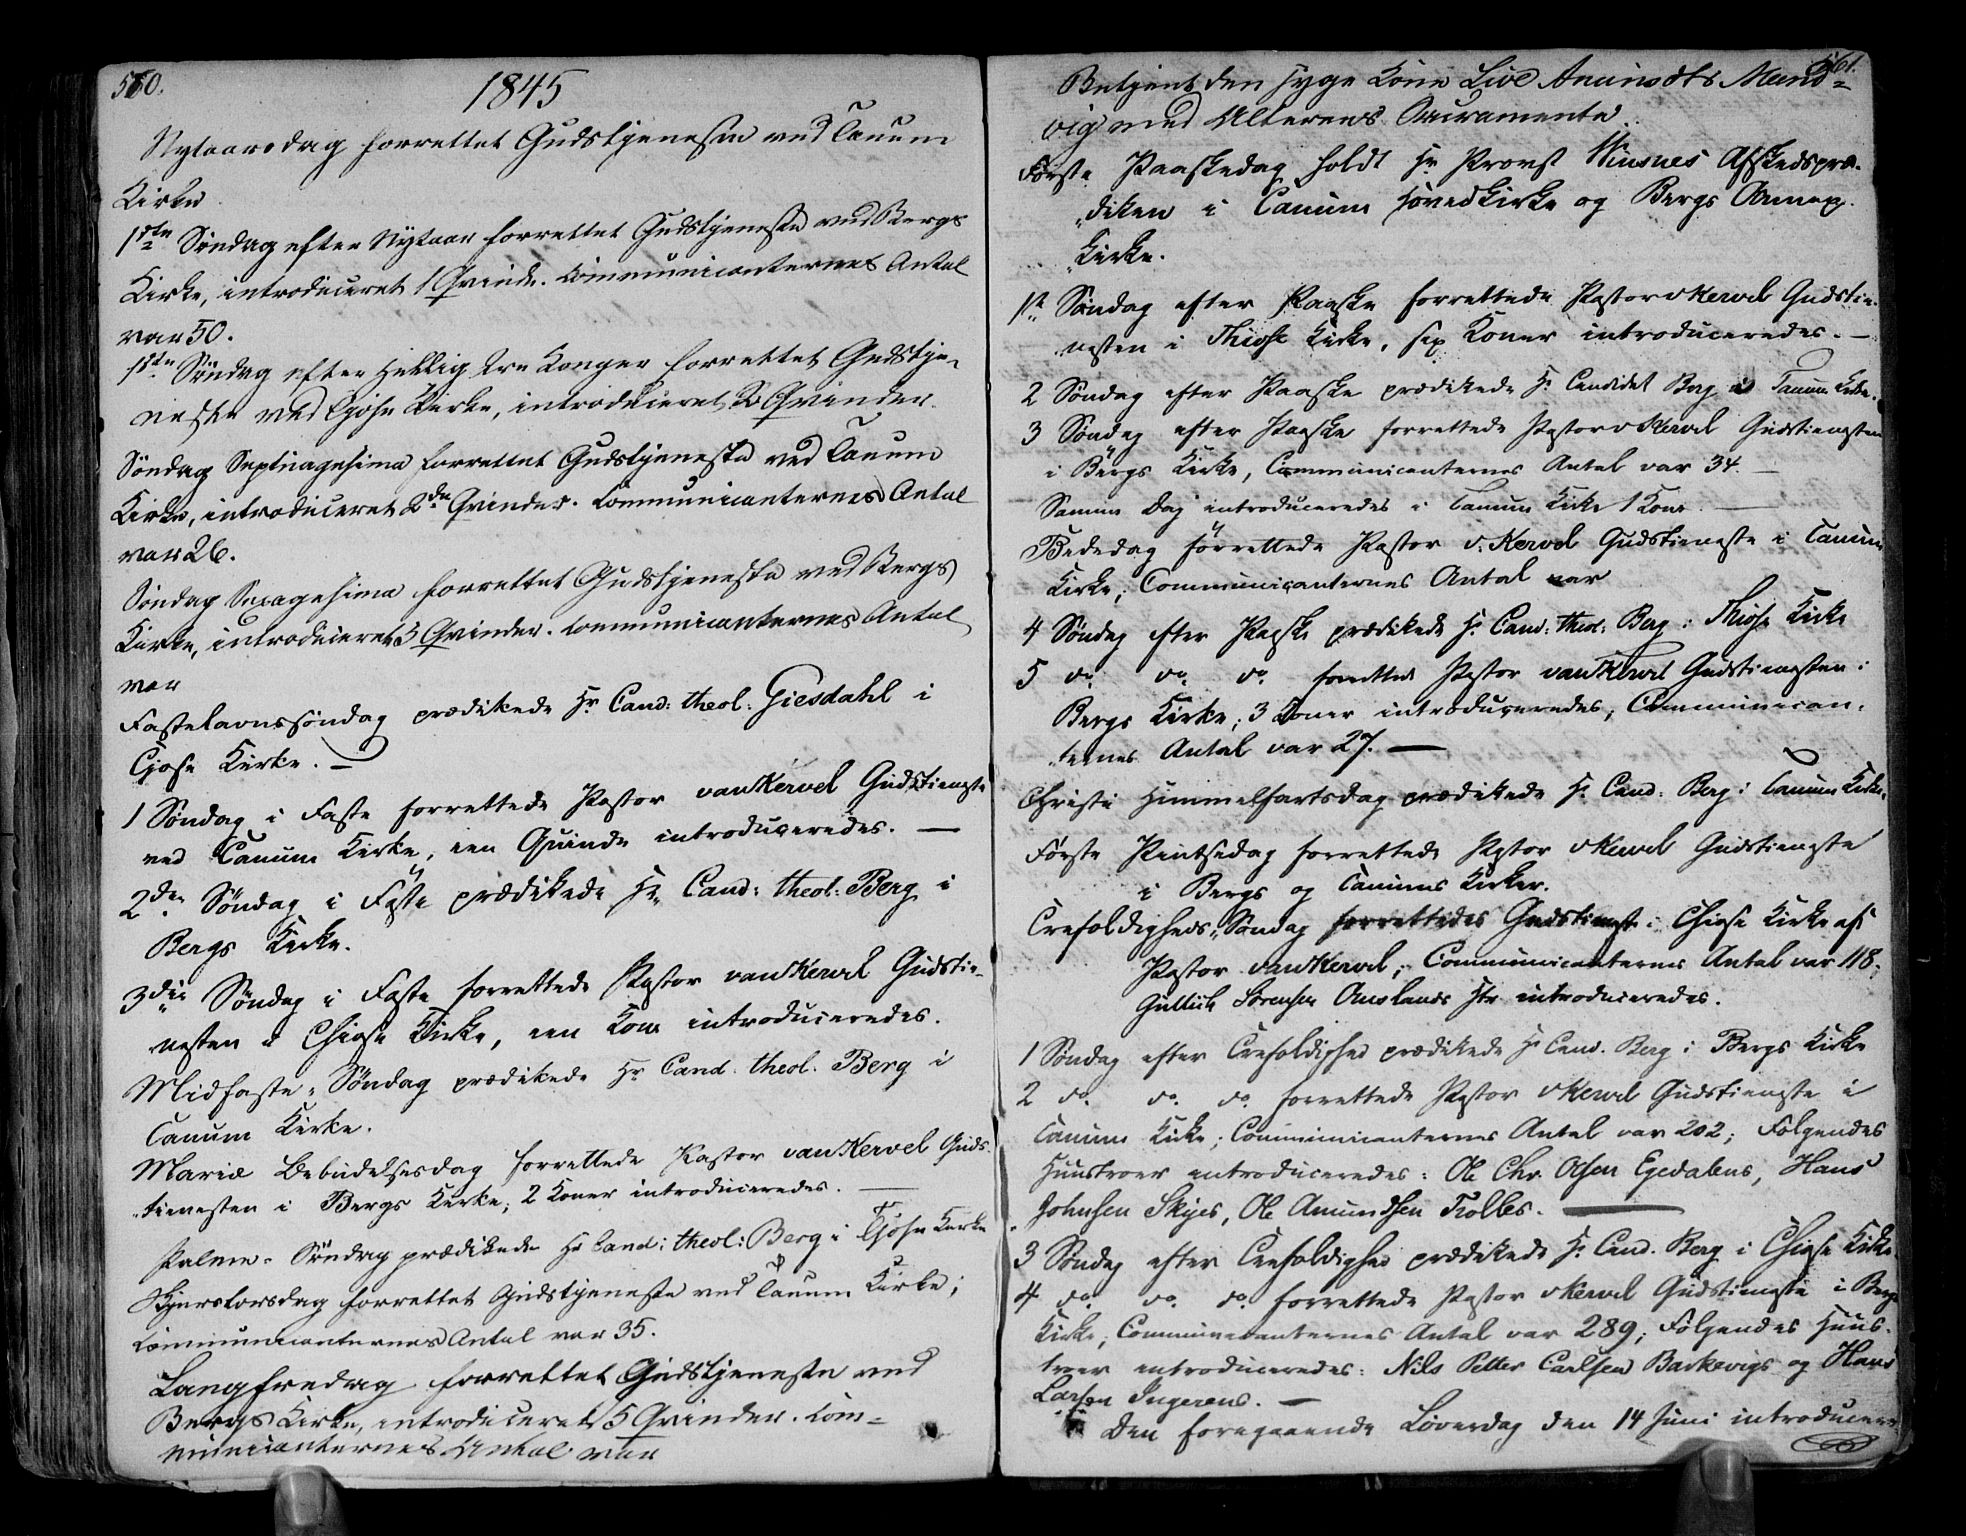 560.
1845
Nytaarsdag forrettet Gudstjeneste ved Tanum
Kirke
1ste Søndag efter Nytaar forrettet Gudstjeneste ved Bergs
Kirke, introduceret 1 Qvinde. Communicanternes Antal
var 50.
1ste Søndag efter Hellig tre Konger forrettet Gudstje-
neste ved Tjøse Kirke, introduceret 2 Qvinder.
Søndag Septuagesima forrettet Gudstjeneste ved Tanum
Kirke, introduceret 2de Qvinder. Communicanternes Antal
var 26.
Søndag Sexagesima forrettet Gudstjeneste ved Bergs
Kirke, introduceret 3 Qvinder. Communicanternes Antal
var
Fastelavnssøndag prædikede Hr Cand: theol: Giesdahl i
Tjøse Kirke. —
1 Søndag i Faste forrettede Pastor van Kervel Gudstieneste
ved Tanum Kirke, een Quinde introduceredes. —
2den Søndag i Faste prædikede Hr. Cand: theol: Berg i
Bergs Kirke.
3die Søndag i Faste forrettede Pastor van Kervel Gudstie-
nesten i Thiøse Kirke, een Kone introduceredes.
Midfaste-Søndag prædikede Hr Cand. theol. Berg i
Tanum Kirke.
Mariæ Bebudelsesdag forrettede Pastor van Kervel Guds-
tienesten i Bergs Kirke; 2 Koner introduceredes. —
Palme-Søndag prædikede Hr Cand: theol: Berg i Tjøse Kirke
Skjærtorsdag forrettet Gudstjeneste ved Tanum Kirke;
Communicanternes Antal var 35.
Langfredag forrettet Gudstjeneste ved
Bergs Kirke, introduceret 5 Qvinder. Com-
municanternes Antal var
561.
Betjent den syge Kone Live Amunsdts Mand-
vig med Alterens Sacramente.
Første Paaskedag holdt Hr Provst Winsnes Afskedspræ-
diken i Tanum Hovedkirke og Bergs Annex-
Kirke.
1ste Søndag efter Paaske forrettede Pastor v Kervel Gudstie-
nesten i Thiøse Kirke, sex Koner introduceredes. —
2 Søndag efter Paaske prædikede Hr Candidat Berg i Tanum Kirke.
3 Søndag efter Paaske forrettede Pastor v Kervel Gudstienesten
i Bergs Kirke, Communicanternes Antal var 34. —
Samme Dag introduceredes i Tanum Kirke 1 Kone. —
Bededag forrettede Pastor v. Kervel Gudstieneste i Tanum
Kirke; Communicanternes Antal var
4 Søndag efter Paaske prædikede Hr. Cand: theol: Berg i Thiøse Kirke
5 do do do forrettede Pastor van Kervel Gudstienesten i
Bergs Kirke; 3 Koner introduceredes; Communican-
ternes Antal var 27. —
Christi Himmelfartsdag prædikede Hr. Cand. Berg i Tanum Kirke.
Første Pintsedag forrettede Pastor v Kervel Gudstieneste
i Bergs og Tanums Kirker.
Trefoldigheds-Søndag forrettedes Gudstieneste i Thiøse Kirke af
Pastor van Kervel; Communicanternes Antal var 118;
Gullich Sørensen Omslands Hr introduceredes.
1 Søndag efter Trefoldighed prædikede Hr Cand. Berg i Bergs Kirke
2 do. do. do. forrettede Pastor v Kervel Gudstieneste i
Tanum Kirke; Communicanternes Antal var 202; Følgendes
Huustroer introduceredes: Ole Chr. Olsen Egedalens, Hans
Johnsen Skijes, Ole Amundsen Trolles. —
3 Søndag efter Trefoldighed prædikede Hr. Cand. Berg i Thiøse Kirke.
4 do. do. do. forrettede Pastor v Kervel Gudstieneste i Bergs
Kirke; Communicanternes Antal var 289; Følgendes Huus-
troer introduceredes: Nils Petter Carlsen Barkevigs og Hans
Larsen Ingerens. —
Den foregaaende Løverdag den 14 Juni introducere-